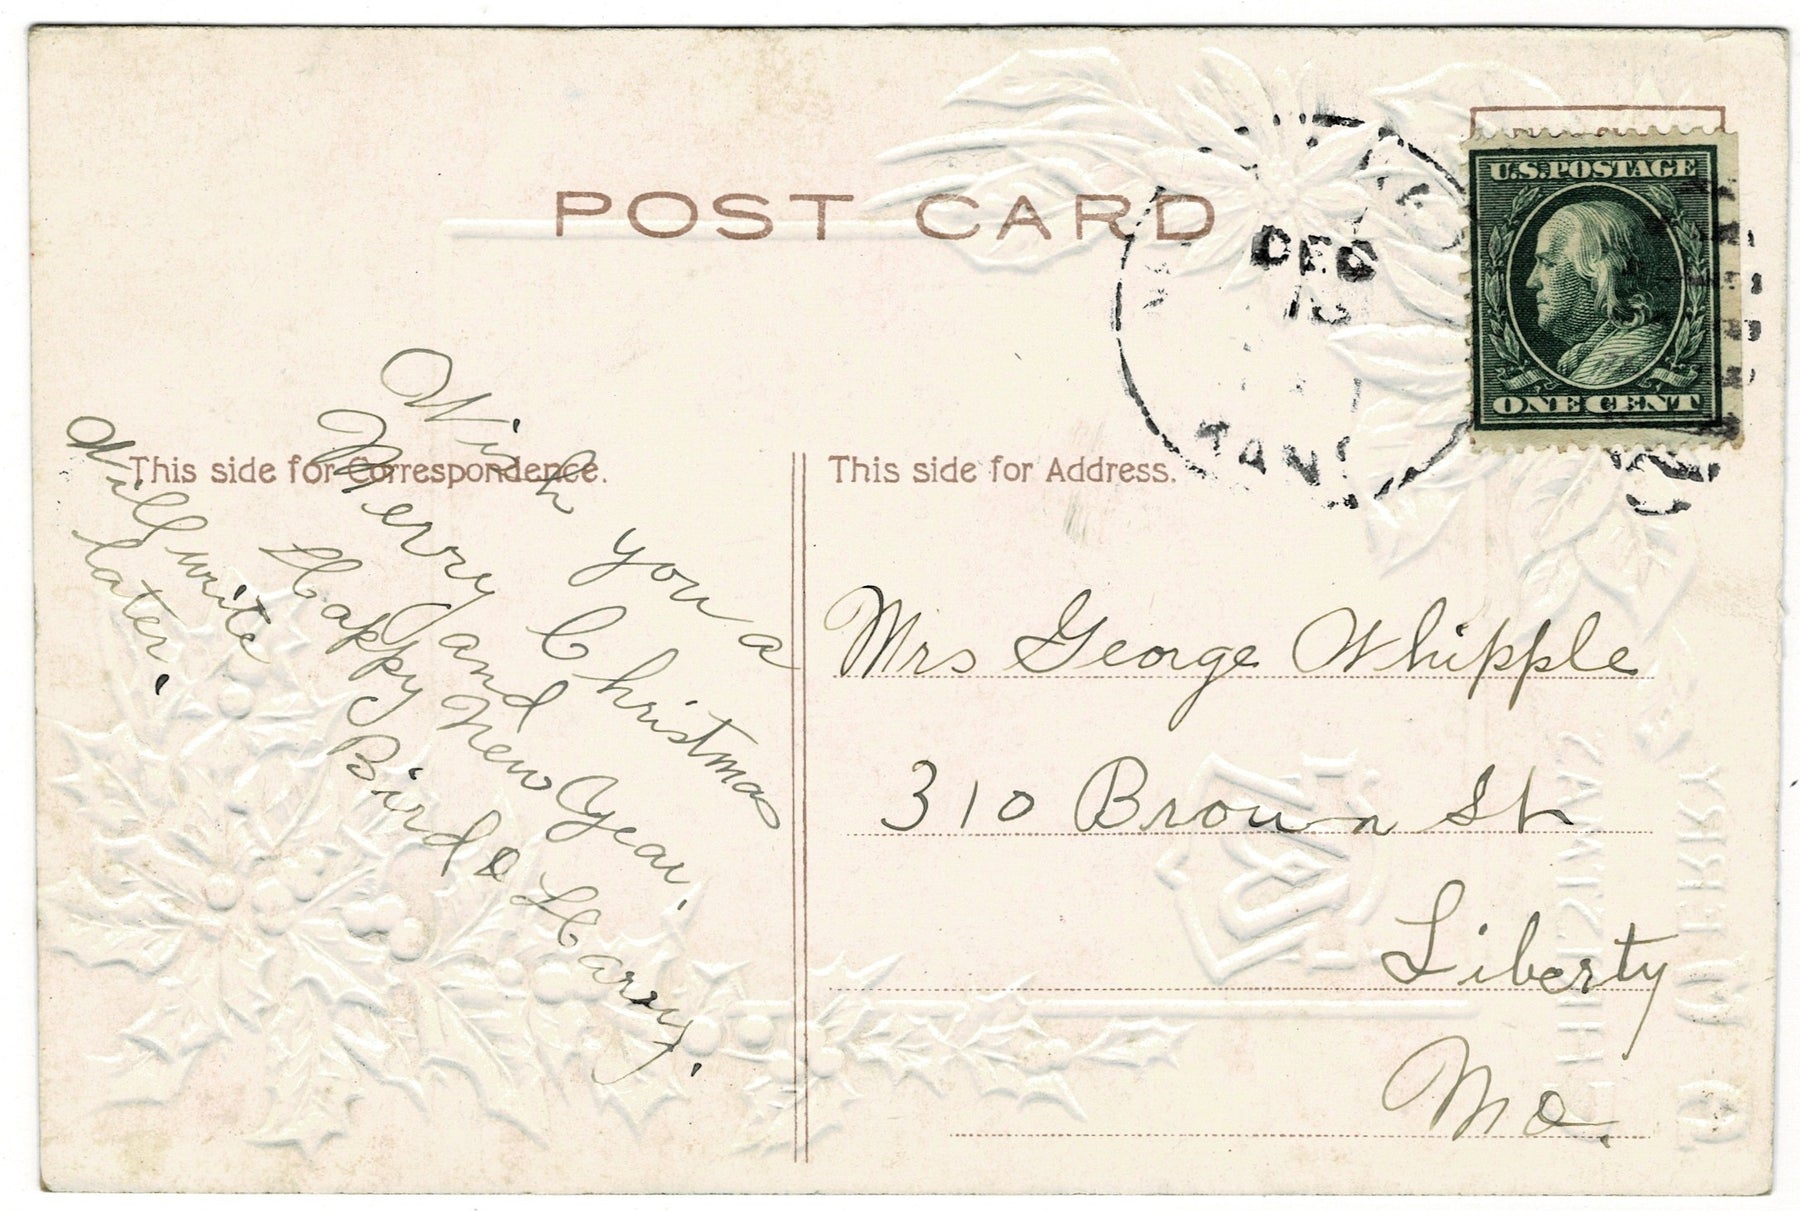 POST CARD
U.S. POSTAGE
ONE CENT
DEC
This side for Correspondence.
This side for Address.
Wish you a
Merry Christmas
and
Happy New Year.
Bird & Harry.
Will write
later.
Mrs George Whipple
310 Brown St
Liberty
Mo.